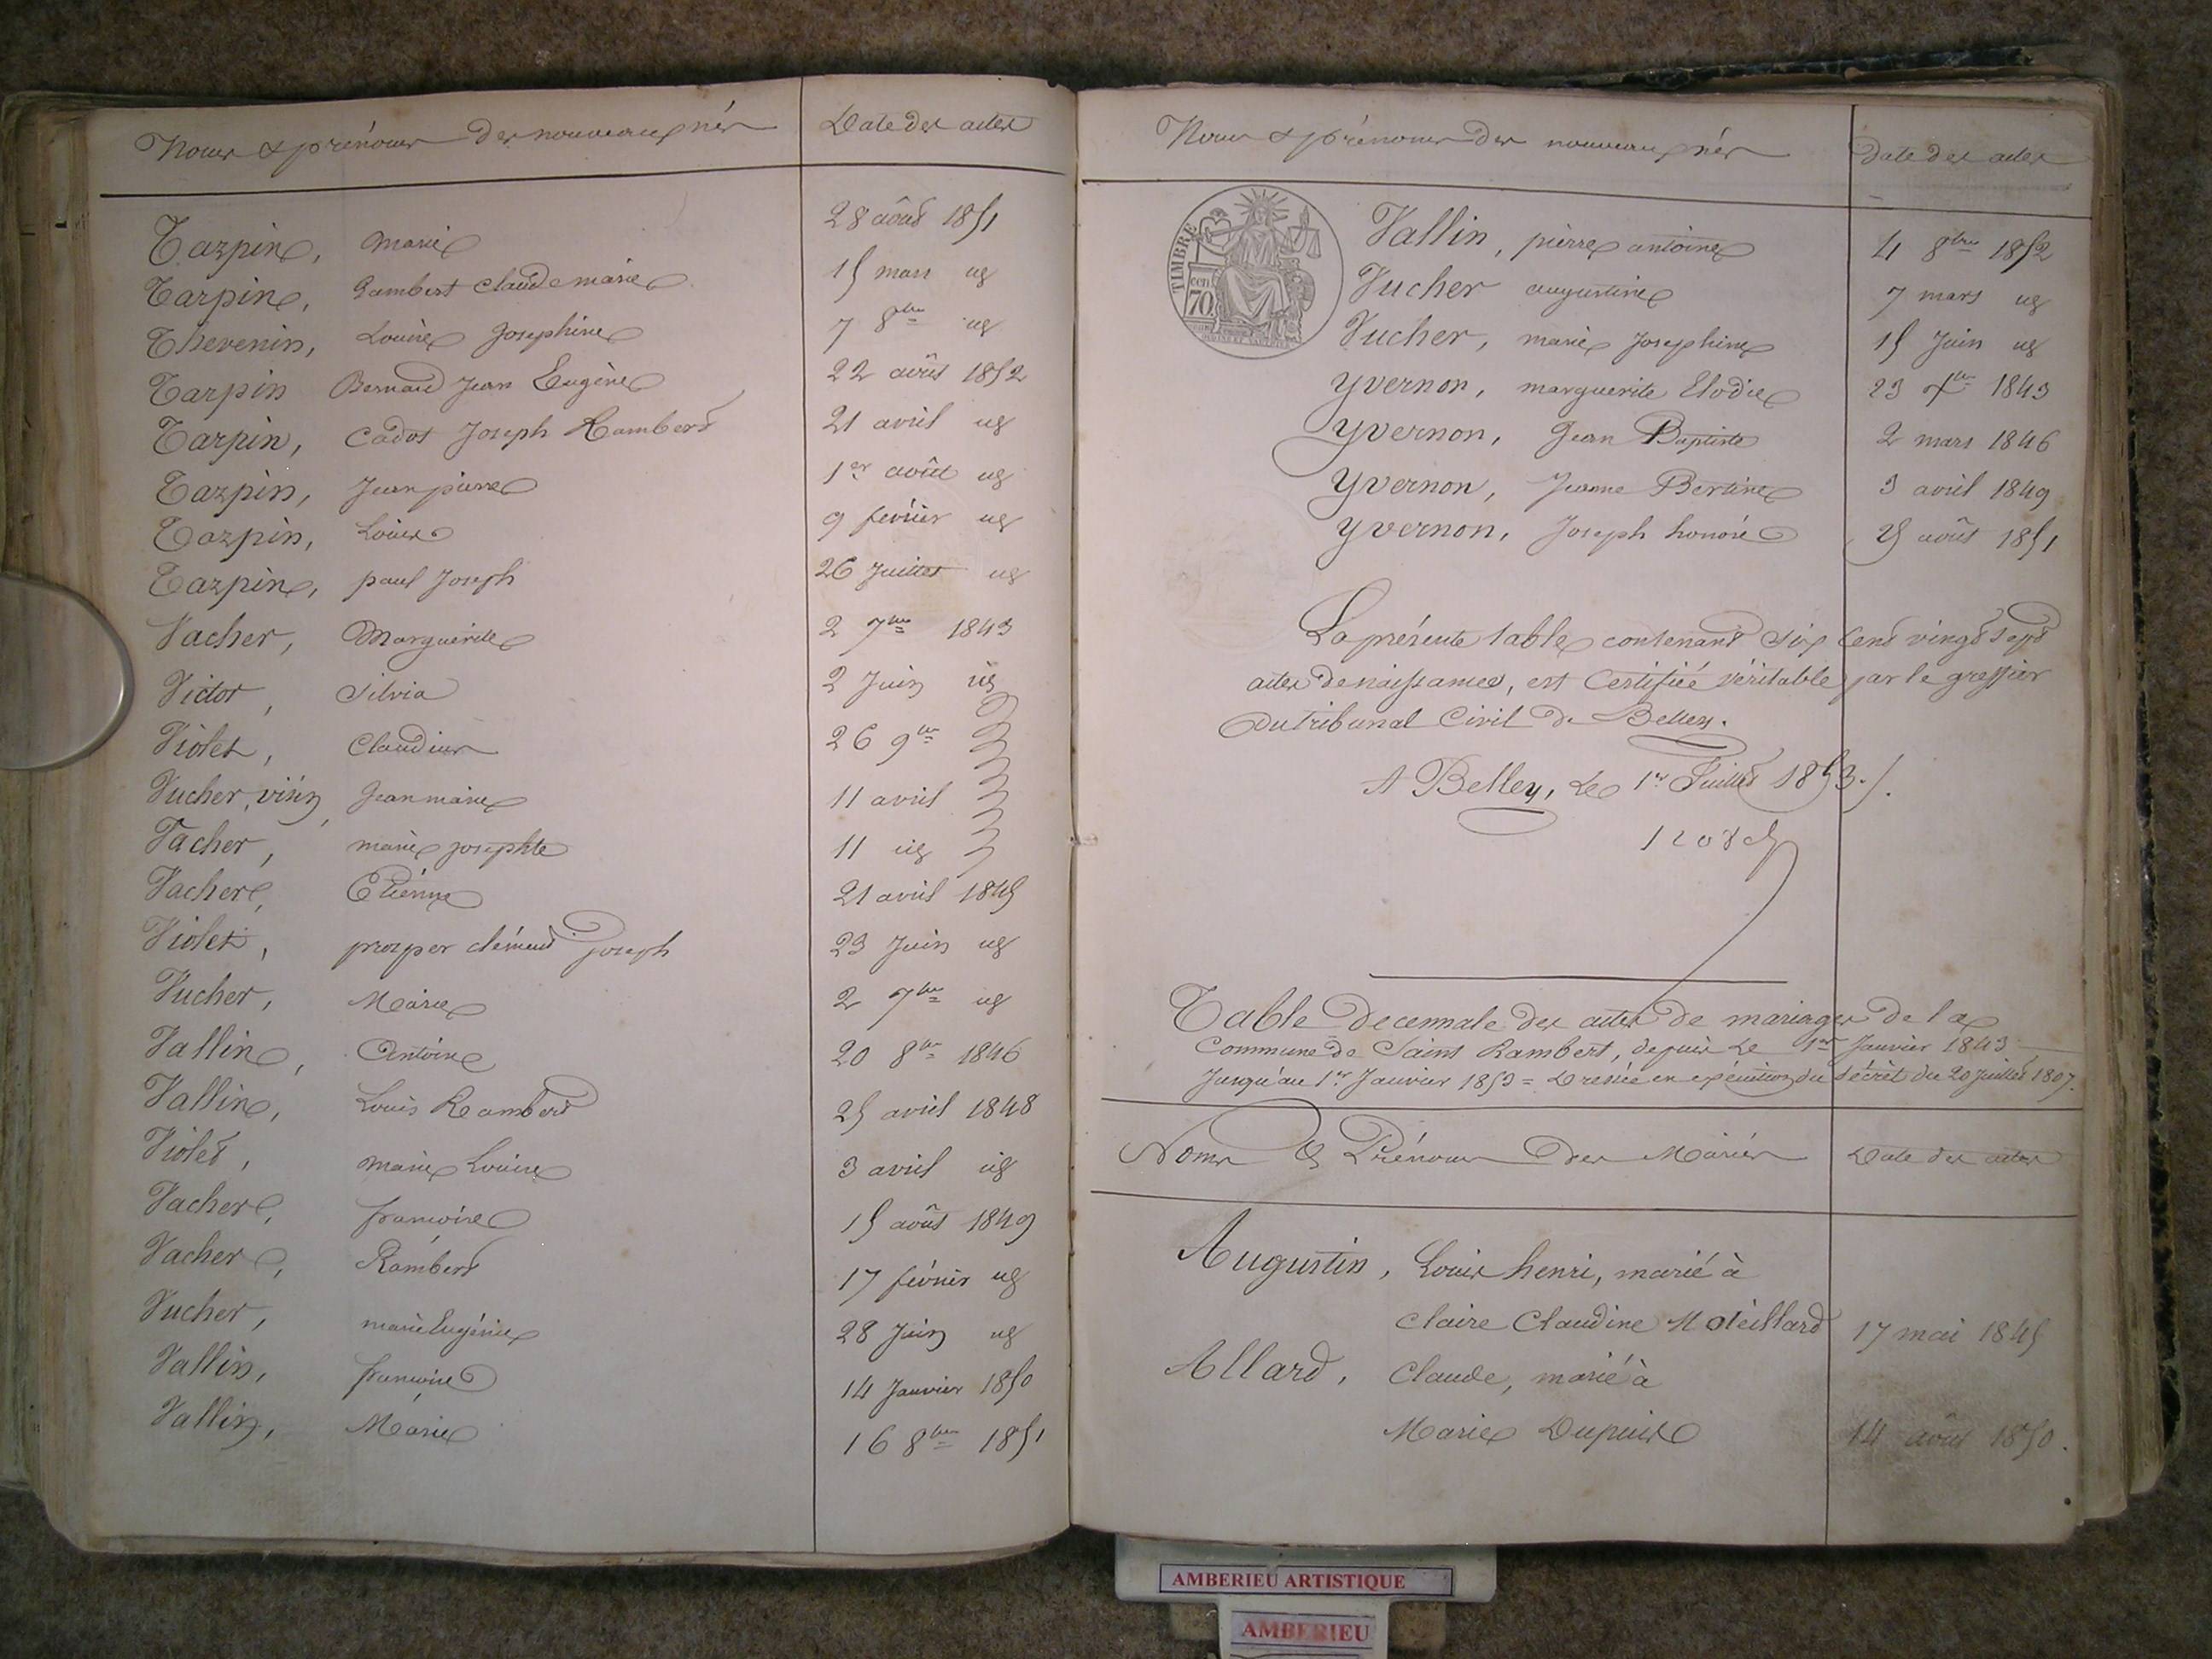 Noms & prénoms des nouveaux nés Date des actes
Tarpin, marie 28 août 1851
Tarpin, Rambert Claude marie 15 mars id
Thevenin, Louise Josephine 7 8bre id
Tarpin Bernard Jean Eugène 22 août 1852
Tarpin, Cadot Joseph Rambert 21 avril id
Tarpin, Jean pierre 1er août id
Tarpin, Louise 9 février id
Tarpin, paul Joseph 26 Juillet id
Vacher, Marguerite 2 7bre 1843
Victor, Silvia 2 Juin id
Violet, Claudius 26 9bre
Vucher, Jean marie 11 avril
Vacher, marie josephte 11 id
Vacher, Etienne 21 avril 1845
Violet, prosper clément joseph 23 Juin id
Vucher, Marie 2 7bre id
Vallin, Antoine 20 8bre 1846
Vallin, Louis Rambert 25 avril 1848
Violet, marie Louise 3 avril id
Vacher, françoise 15 août 1849
Vacher, Rambert 17 février id
Vucher, marie Eugénie 28 Juin id
Vallin, françoise 14 Janvier 1850
Vallin, Marie 16 8bre 1851
Noms & prénoms des nouveaux nés Date des actes
TIMBRE
cen
70
Vallin, pierre antoine 4 8bre 1852
Vucher augustine 7 mars id
Vucher, marie Josephine 15 Juin id
Yvernon, marguerite Elodie 23 Xbre 1843
Yvernon, Jean Baptiste 2 mars 1846
Yvernon, Jeanne Bertine 3 avril 1849
Yvernon, Joseph honoré 25 août 1851
La présente table contenant six cent vingt sept
actes de naissances, est Certifiée véritable par le greffier
du tribunal Civil de Belley.
A Belley, Le 1er Juillet 1853./.
Table decennale des actes de mariages de la
Commune de Saint Rambert, depuis Le 1er Janvier 1843
Jusqu'au 1er Janvier 1853 = Dressée en exécution du décret du 20 Juillet 1807.
Noms & Prénoms Des Mariés Date des actes
Augustin, Louis henri, marié à
Claire Claudine 17 mai 1845
Allard, Claude, marié à
Marie Dupuis 14 août 1850.
AMBERIEU ARTISTIQUE
AMBERIEU